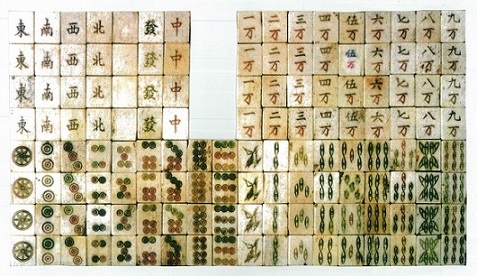 東 南 西 北 發 中 一万 二万 三万 四万 伍万 六万 七万 八万 九万
東 南 西 北 發 中 一万 二万 三万 四万 伍万 六万 七万 八万 九万
東 南 西 北 發 中 一万 二万 三万 四万 伍万 六万 七万 八万 九万
東 南 西 北 發 中 一万 二万 三万 四万 伍万 六万 七万 八万 九万